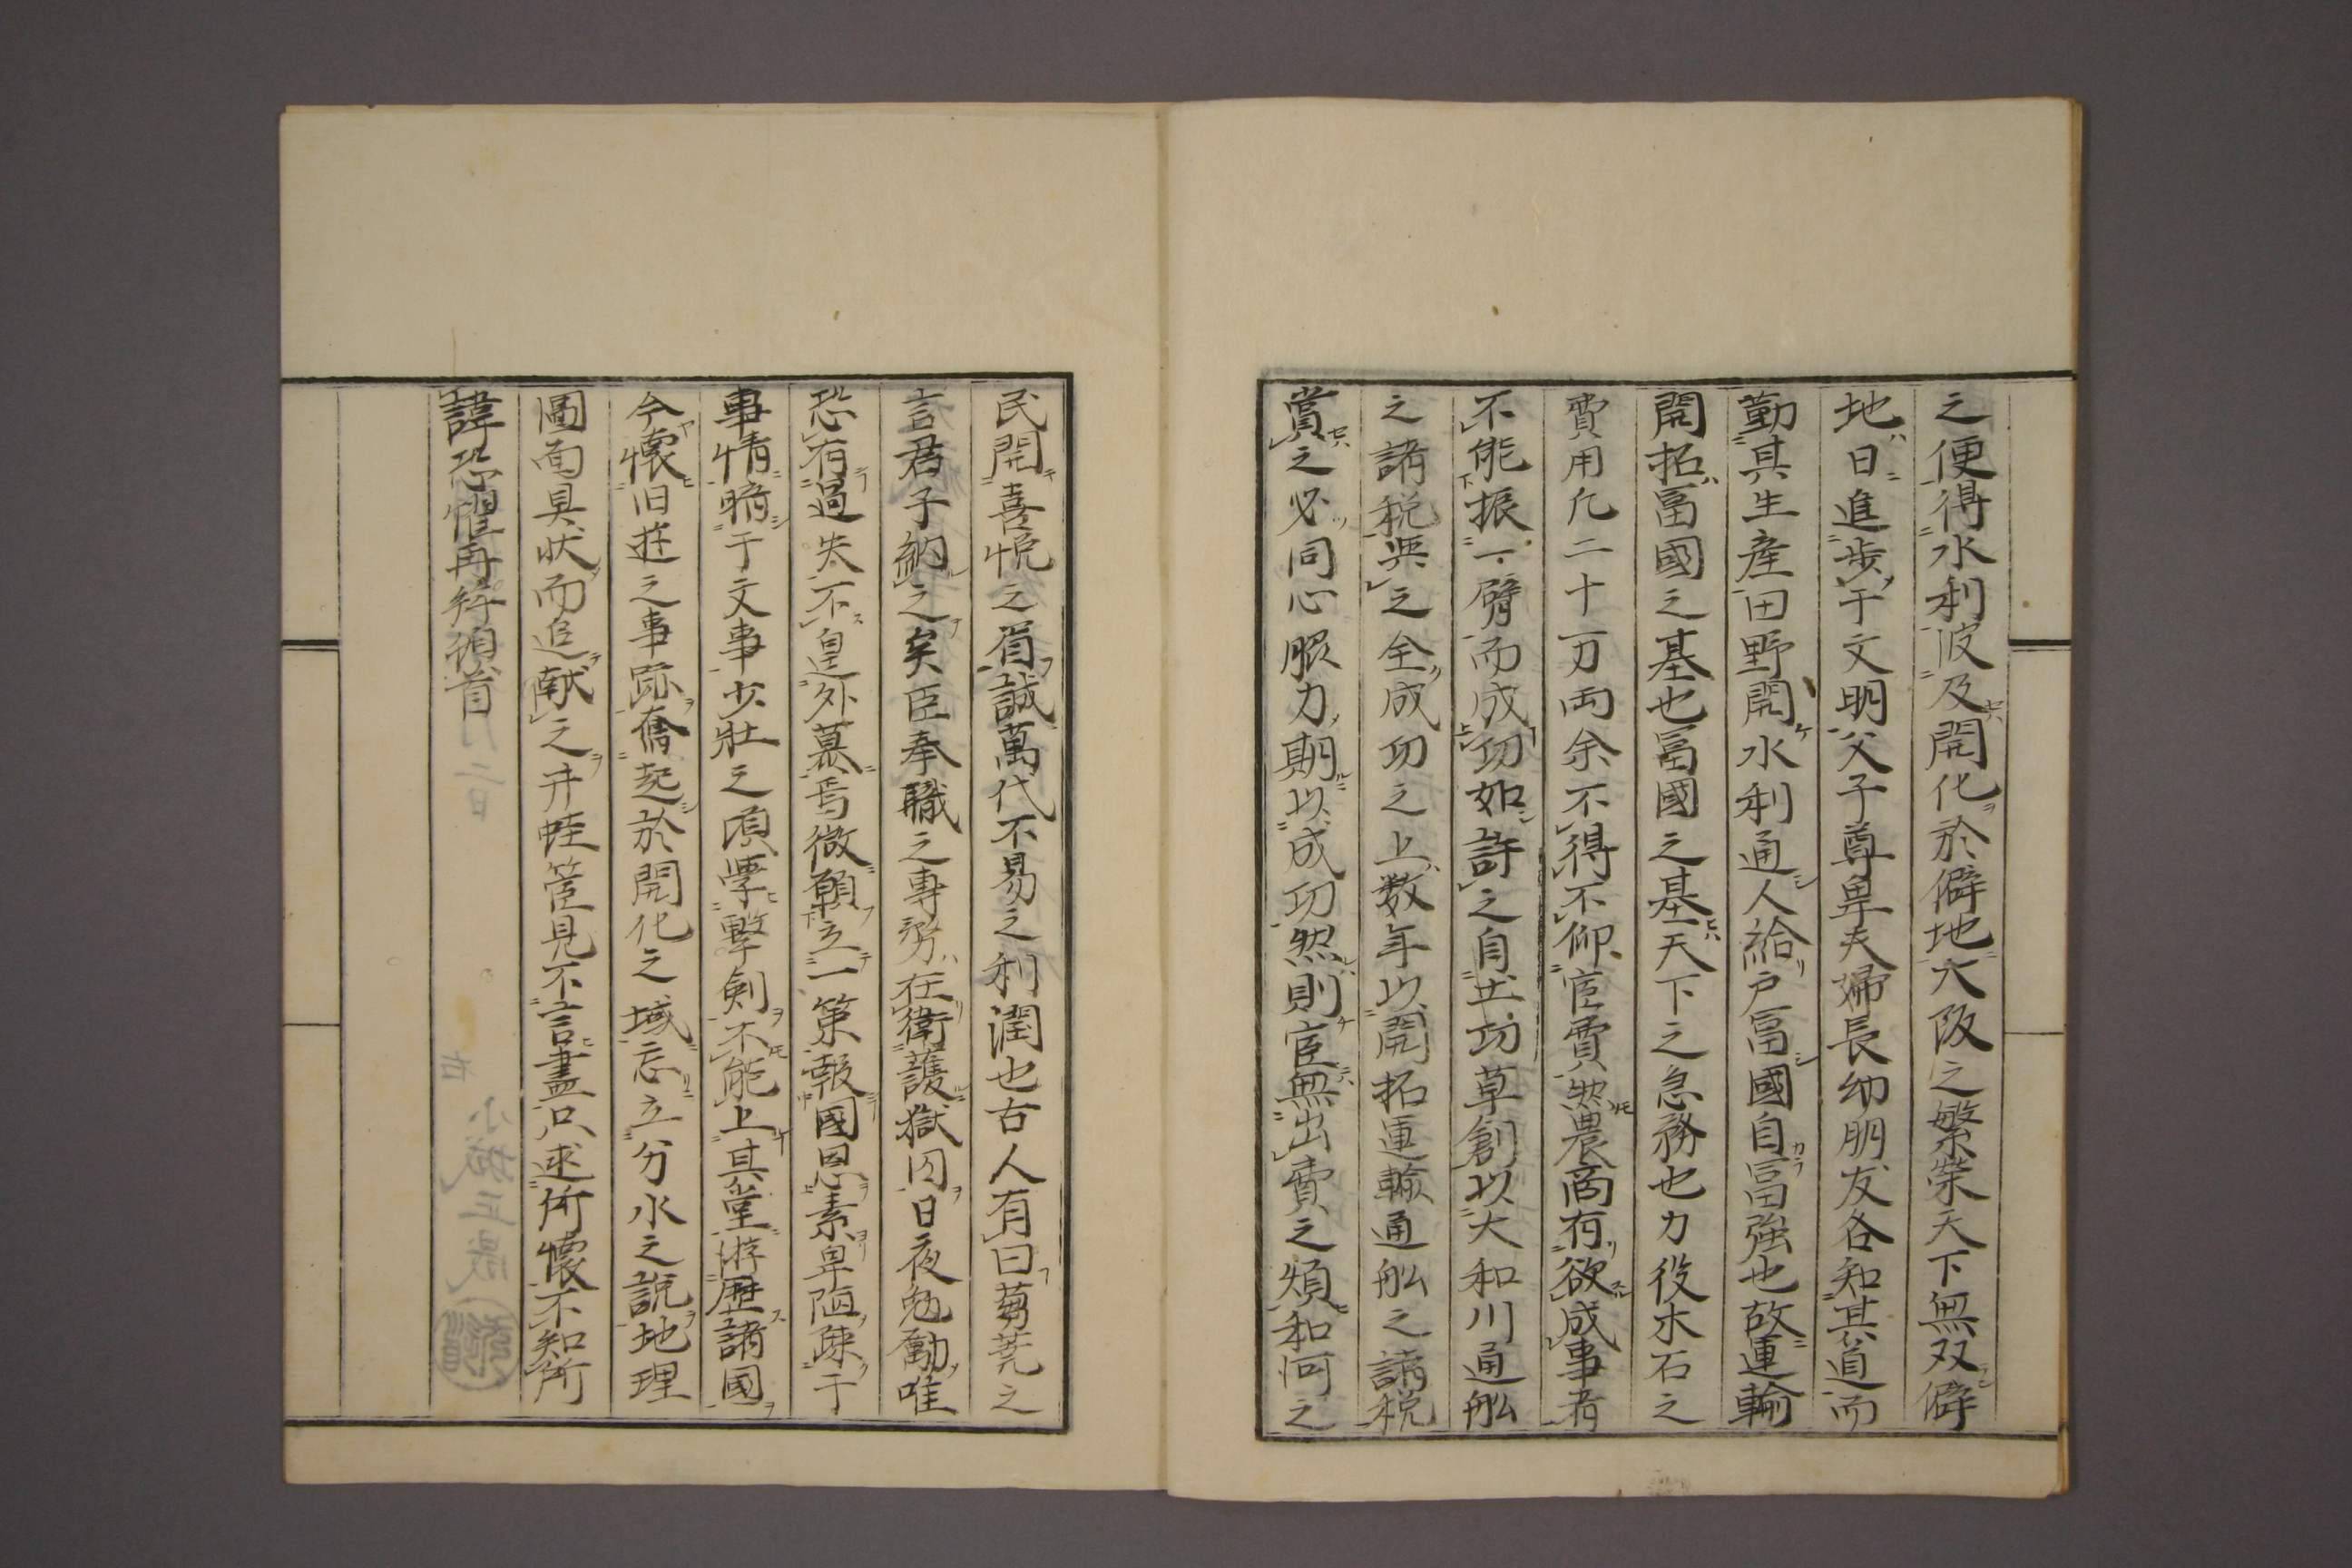 之便得水利波及開化於僻地大阪之繁榮天下無双僻
地日進歩于文明父子尊卑夫婦長幼朋友各知其道而
勤其生産田野開水利通人給戸冨國自冨強也故運輸
開拓冨國之基也冨國之基天下之急務也力役木石之
費用凢二十万両余不得不仰官費然農商有欲成事者
不能振一臂而成功如許之自費功草創以大和川通舩
之諸税與之全成功之上数年以開拓運輸通舩之諸税
賞之必同心服力期以成功然則官無出費之煩和河之
民開喜悦之眉誠萬代不易之利潤也古人有曰蒭蕘之
言君子納之矣臣奉職之専務在衛護獄囚日夜勉勵唯
恐有過失不遑外慕焉微願立一策報國恩素卑陋疎于
事情暗于文事少壮之頃學撃剣不能上其堂游歴諸國
今懐旧遊之事跡奮起於開化之域忘立分水之説地理
圖面具状而追献之井蛙管見不言盡只述所懐不知所
諱恐懼再拜頓首